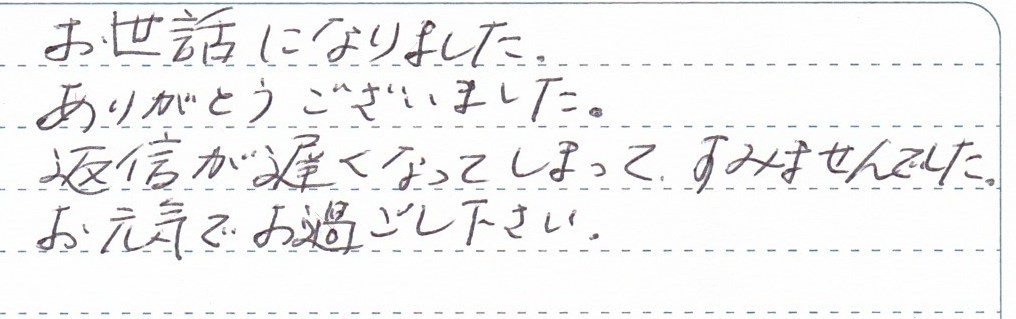 お世話になりました.
ありがとうございました。
返信が遅くなってしまって、すみませんでした。
お元気でお過ごし下さい.